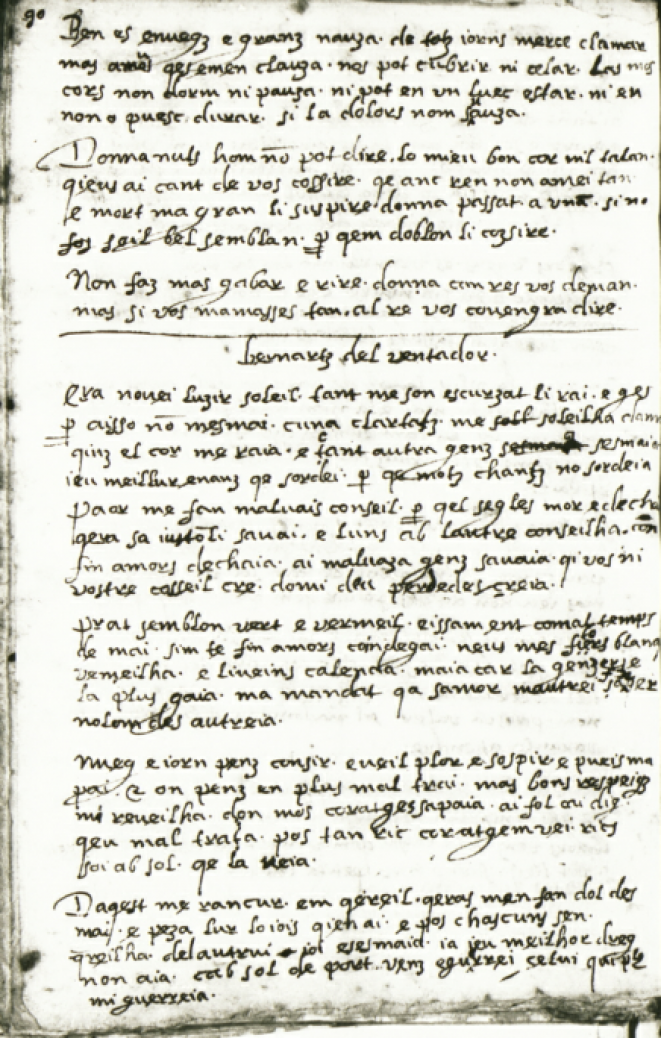 90
Ben es enuegz e granz nauza. de totz iorns merce clamar
mas amors qes emen clauza. nos pot cubrir ni celar. Las mos
cors non dorm ni pausa. ni pot en un luec estar. ni eu
non o puesc durar. si la dolors nom
Donna nuls hom nō pot dire. lo mieu bon cor nil talan.
qieus ai cant de vos cossire. qe anc ren non amei tan
e mort magran li suspire. donna passat a un. si no
fos seil bel semblan. p qem doblon li cozsire.
Non faz mas gabar e rire. donna can res vos deman.
mas si vos mamasses tan. al re vos couengra dire.
bernartz del ventador.
Era nouei luzir soleil. tant me son escurzat li rai. e ges
p aisso nō mesmai. cuna clartatz me soleilha
qinz el cor me raia. e cant autra genz sesmaia
ieu meillur enanz qe sordei. p qe motz chantz no sordeia
Paor me fan maluais conseil. p qel segles mor e
qera sa iusto li sauai. e luns ab lautre conseilha. con
fin amors dechaia. ai maluaza genz sauaia. qi vos ni
vostre cosseil cre. domi deu perde e descreia.
Prat semblon vert e vermeil. eissament comal temps
de mai. sim te fin amors condegai. neus mes flors blanq
vemeilha. e liueins calenda. maia car la genzer e
la plus gaia. ma mandat qa samor mautrei
nolom des autreia.
Nueg e iorn penz consir. e ueil plor e sospir e pueis ma
pai. on penz en plus mal trai. mas bons respeig
mi reueilha. don mos coratges sapaia. ai fol cai dig
qeu mal traia. pos tan ric coratgem vei ric
soi ab sol. qe la ueia.
Dagest me rancur. em qereil. qeras men fan dol des
mai. e peza lur lo iois qieu ai. e pos chascuns sen.
qreilha. delautrui ioi e sesmaia. ia ieu meilhor dreg
non aia. cab sol de port. venz e guerrei celui
mi guerreia.